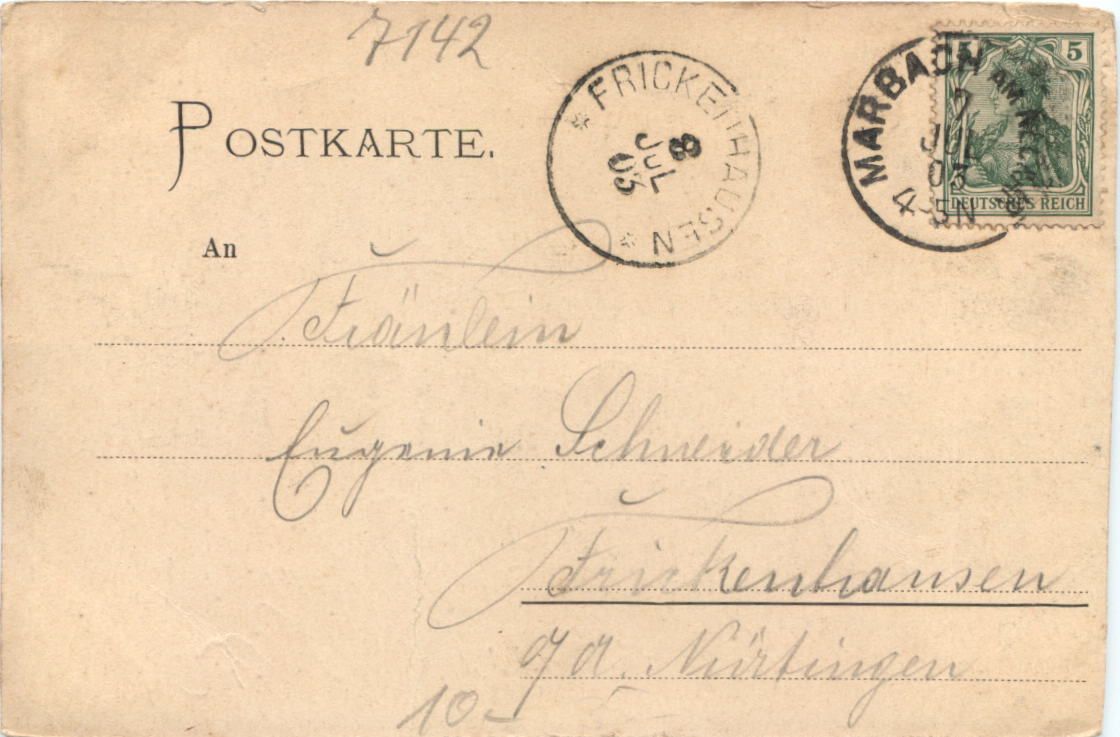 7142
POSTKARTE.
FRICKENHAUSEN
8
JUL
03
MARBACH AM NECKAR
7
JUL
03
4-5N
5 5
DEUTSCHES REICH
An
Fräulein
Eugenie Schneider
Frickenhausen
Nürtingen
10-